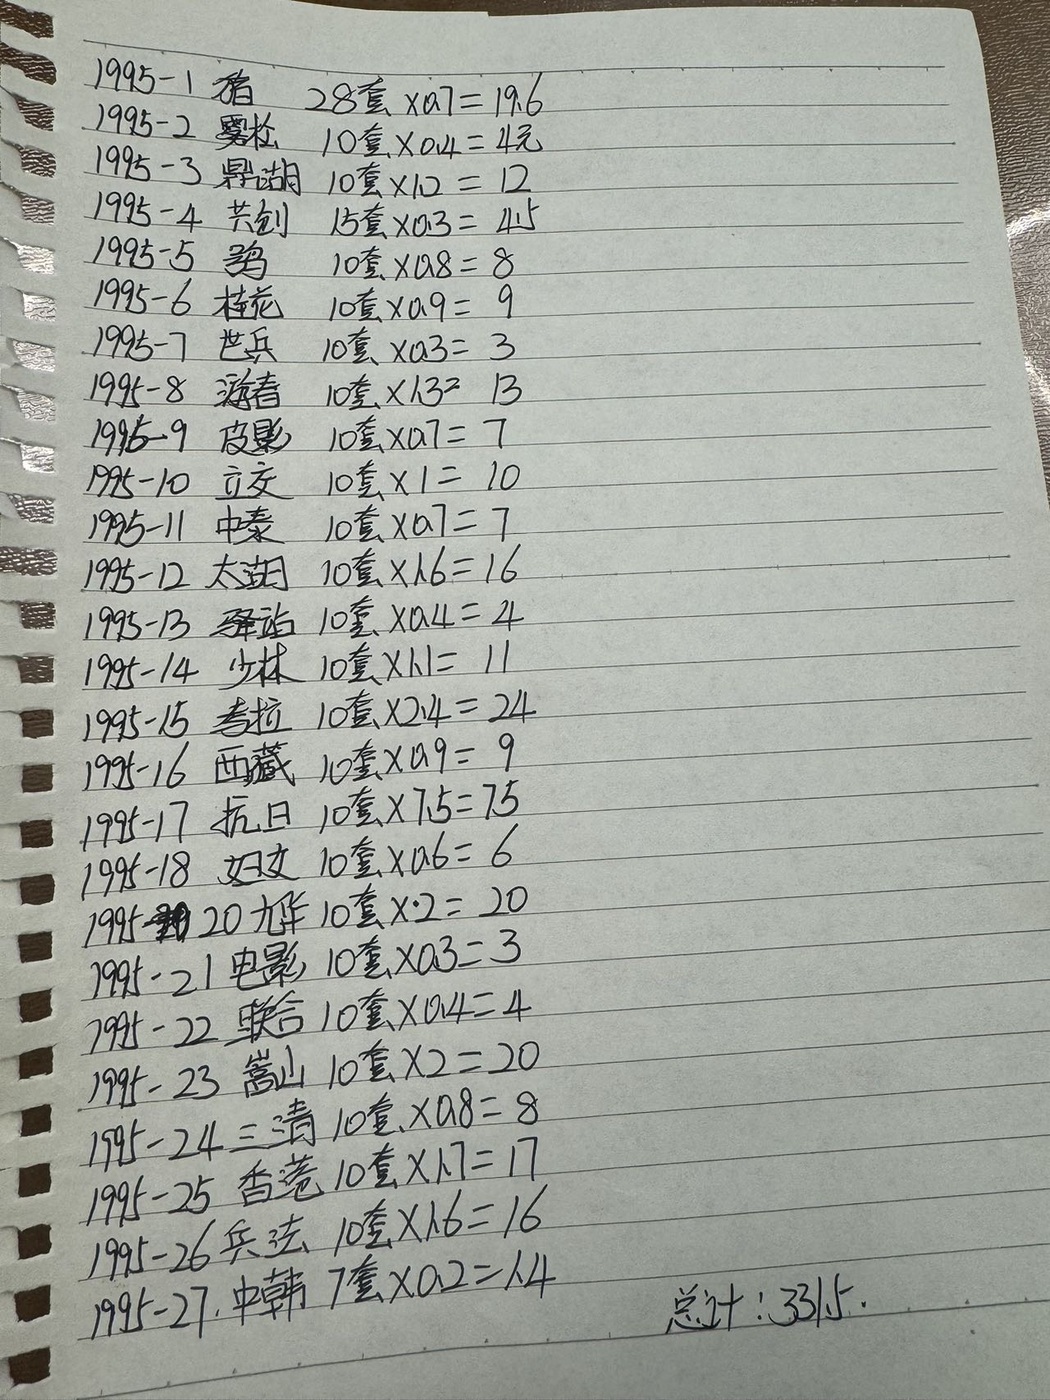 1995-1 猪 28套×0.7=19.6
1995-2 雾松 10套×0.4=4元
1995-3 鼎湖 10套×1.2=12
1995-4 共创 15套×0.3=4.5
1995-5 鹄 10套×0.8=8
1995-6 桂花 10套×0.9=9
1995-7 世乒 10套×0.3=3
1995-8 游春 10套×1.3=13
1995-9 皮影 10套×0.7=7
1995-10 立交 10套×1=10
1995-11 中泰 10套×0.7=7
1995-12 太湖 10套×1.6=16
1995-13 驿站 10套×0.4=4
1995-14 少林 10套×1.1=11
1995-15 考拉 10套×2.4=24
1995-16 西藏 10套×0.9=9
1995-17 抗日 10套×7.5=75
1995-18 妇女 10套×0.6=6
1995-20 九华 10套×2=20
1995-21 电影 10套×0.3=3
1995-22 联合 10套×0.4=4
1995-23 嵩山 10套×2=20
1995-24 三清 10套×0.8=8
1995-25 香港 10套×1.7=17
1995-26 兵法 10套×1.6=16
1995-27.中韩 7套×0.2=1.4
总计:331.5.